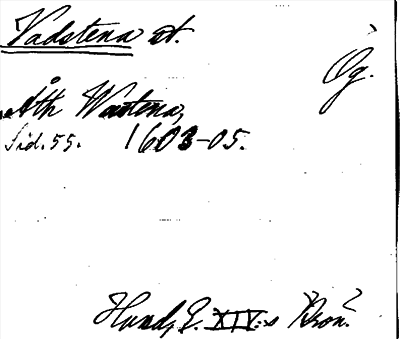 Vadstena st.
Ög.
Åth Wastena,
Sid. 55. 1603-05.
Hund, E. XIV:s Krön.